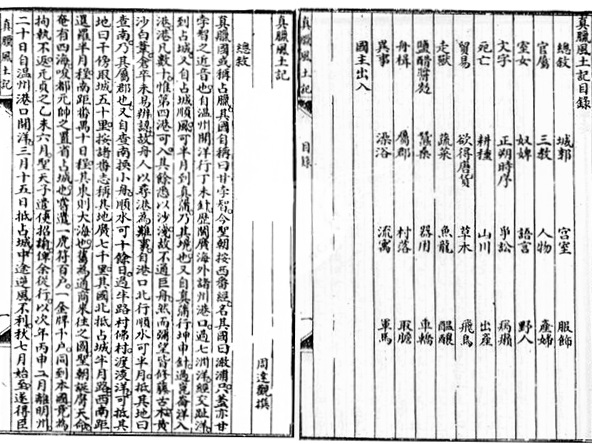 真臘風土記目錄
總敘 城郭 宮室 服飾
官屬 三教 人物 產婦
室女 奴婢 語言 野人
文字 正朔時序 爭訟 病癩
死亡 耕種 山川 出產
貿易 欲得唐貨 草木 飛鳥
走獸 蔬菜 魚龍 醖釀
鹽醋醬麴 蠶桑 器用 車轎
舟楫 屬郡 村落 取膽
異事 澡浴 流寓 軍馬
國主出入
真臘風土記 目錄
真臘風土記
周達觀撰
總敘
真臘國或稱占臘其國自稱曰甘孛智今聖朝按西番經名其國曰澉浦只蓋亦甘
孛智之近音也自溫州開洋行丁未針歷閩廣海外諸州港口過七洲洋經交趾洋
到占城又自占城順風可半月到真蒲乃其境也又自真蒲行坤申針過崑崙洋入
港港凡數十惟第四港可入其餘悉以沙淺故不通巨舟然而彌望皆修藤古木黃
沙白葦倉卒未易辨認故舟人以尋港為難事自港口北行順水可半月抵其地曰
查南乃其屬郡也又自查南換小舟順水可十餘日過半路村佛村渡淡洋可抵其
地曰干傍取城五十里按諸番志稱其地廣七千里其國北抵占城半月路西南距
暹羅半月程南距番禺十日程其東則大海也舊為通商來往之國聖朝誕膺天命
奄有四海唆都元帥之置省占城也嘗遣一虎符百戶一金牌千戶同到本國竟為
拘執不返元貞之乙未六月聖天子遣使招諭俾余從行以次年丙申二月離明州
二十日自溫州港口開洋三月十五日抵占城中途逆風不利秋七月始至遂得臣
真臘風土記